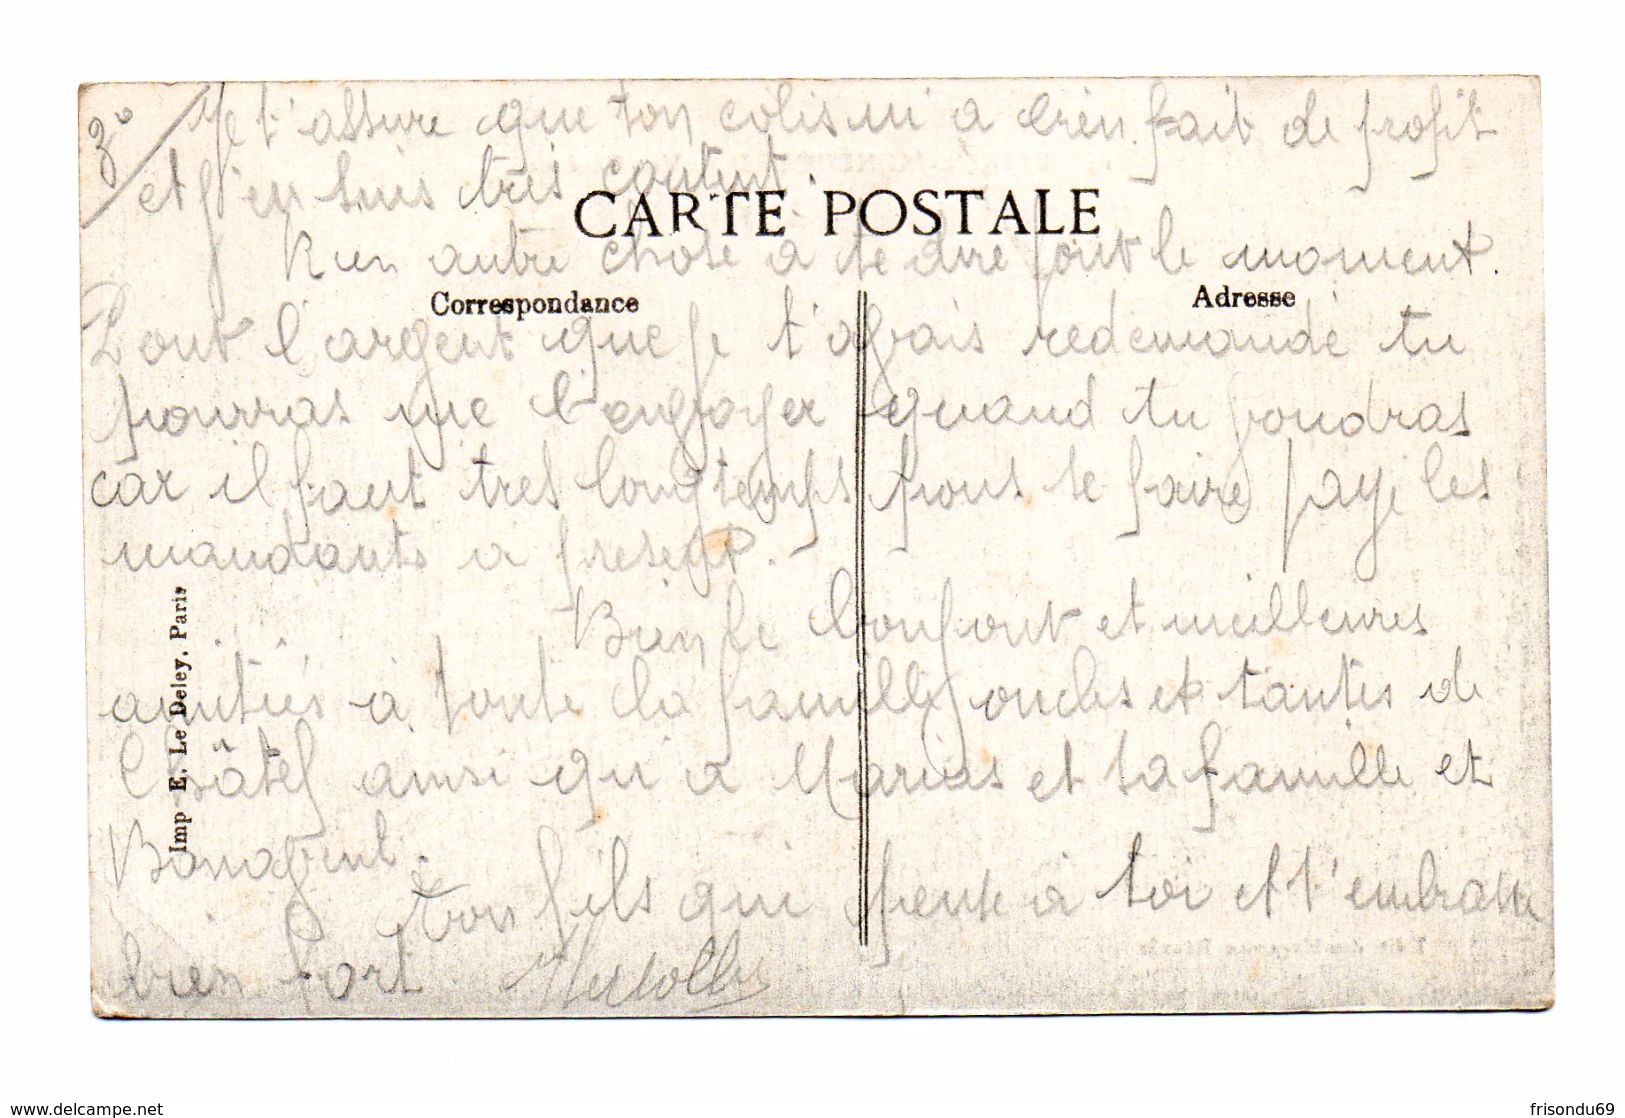 3° Je t'assure que ton colis m'a bien fait de profit
et j'en suis très content.
CARTE POSTALE
Rien autre chose à te dire pour le moment.
Correspondance
Adresse
Pour l'argent que je t'avais redemandé tu
pourras me l'envoyer quand tu voudras
car il faut tres longtemps pour se faire paye les
mandants a present.
Bien le bonjour et meilleures
amitiés à toute la famille oncles et tantes de
Châtel ainsi qu'a Marius et sa famille et
Bonaveut.
Ton fils qui pense à toi et t'embrasse
bien fort
Imp E. Le Deley, Paris
www.delcampe.net
frisondu69